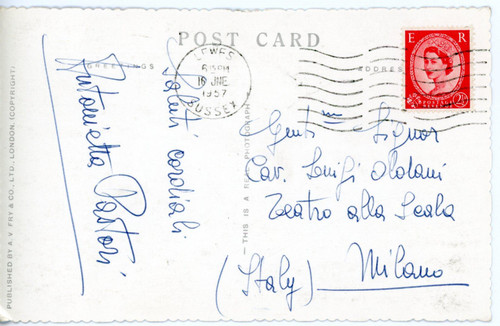 POST CARD
GREETINGS
ADDRESS
LEWES
6 15 PM
16 JNE
1957
SUSSEX
E R
POSTAGE
2½
Saluti cordiali
Antonietta Pastori
Gent. Signor
Cav. Luigi Oldani
Teatro alla Scala
Milano
(Italy)
THIS IS A REAL PHOTOGRAPH
PUBLISHED BY A. V. FRY & CO., LTD., LONDON, (COPYRIGHT)